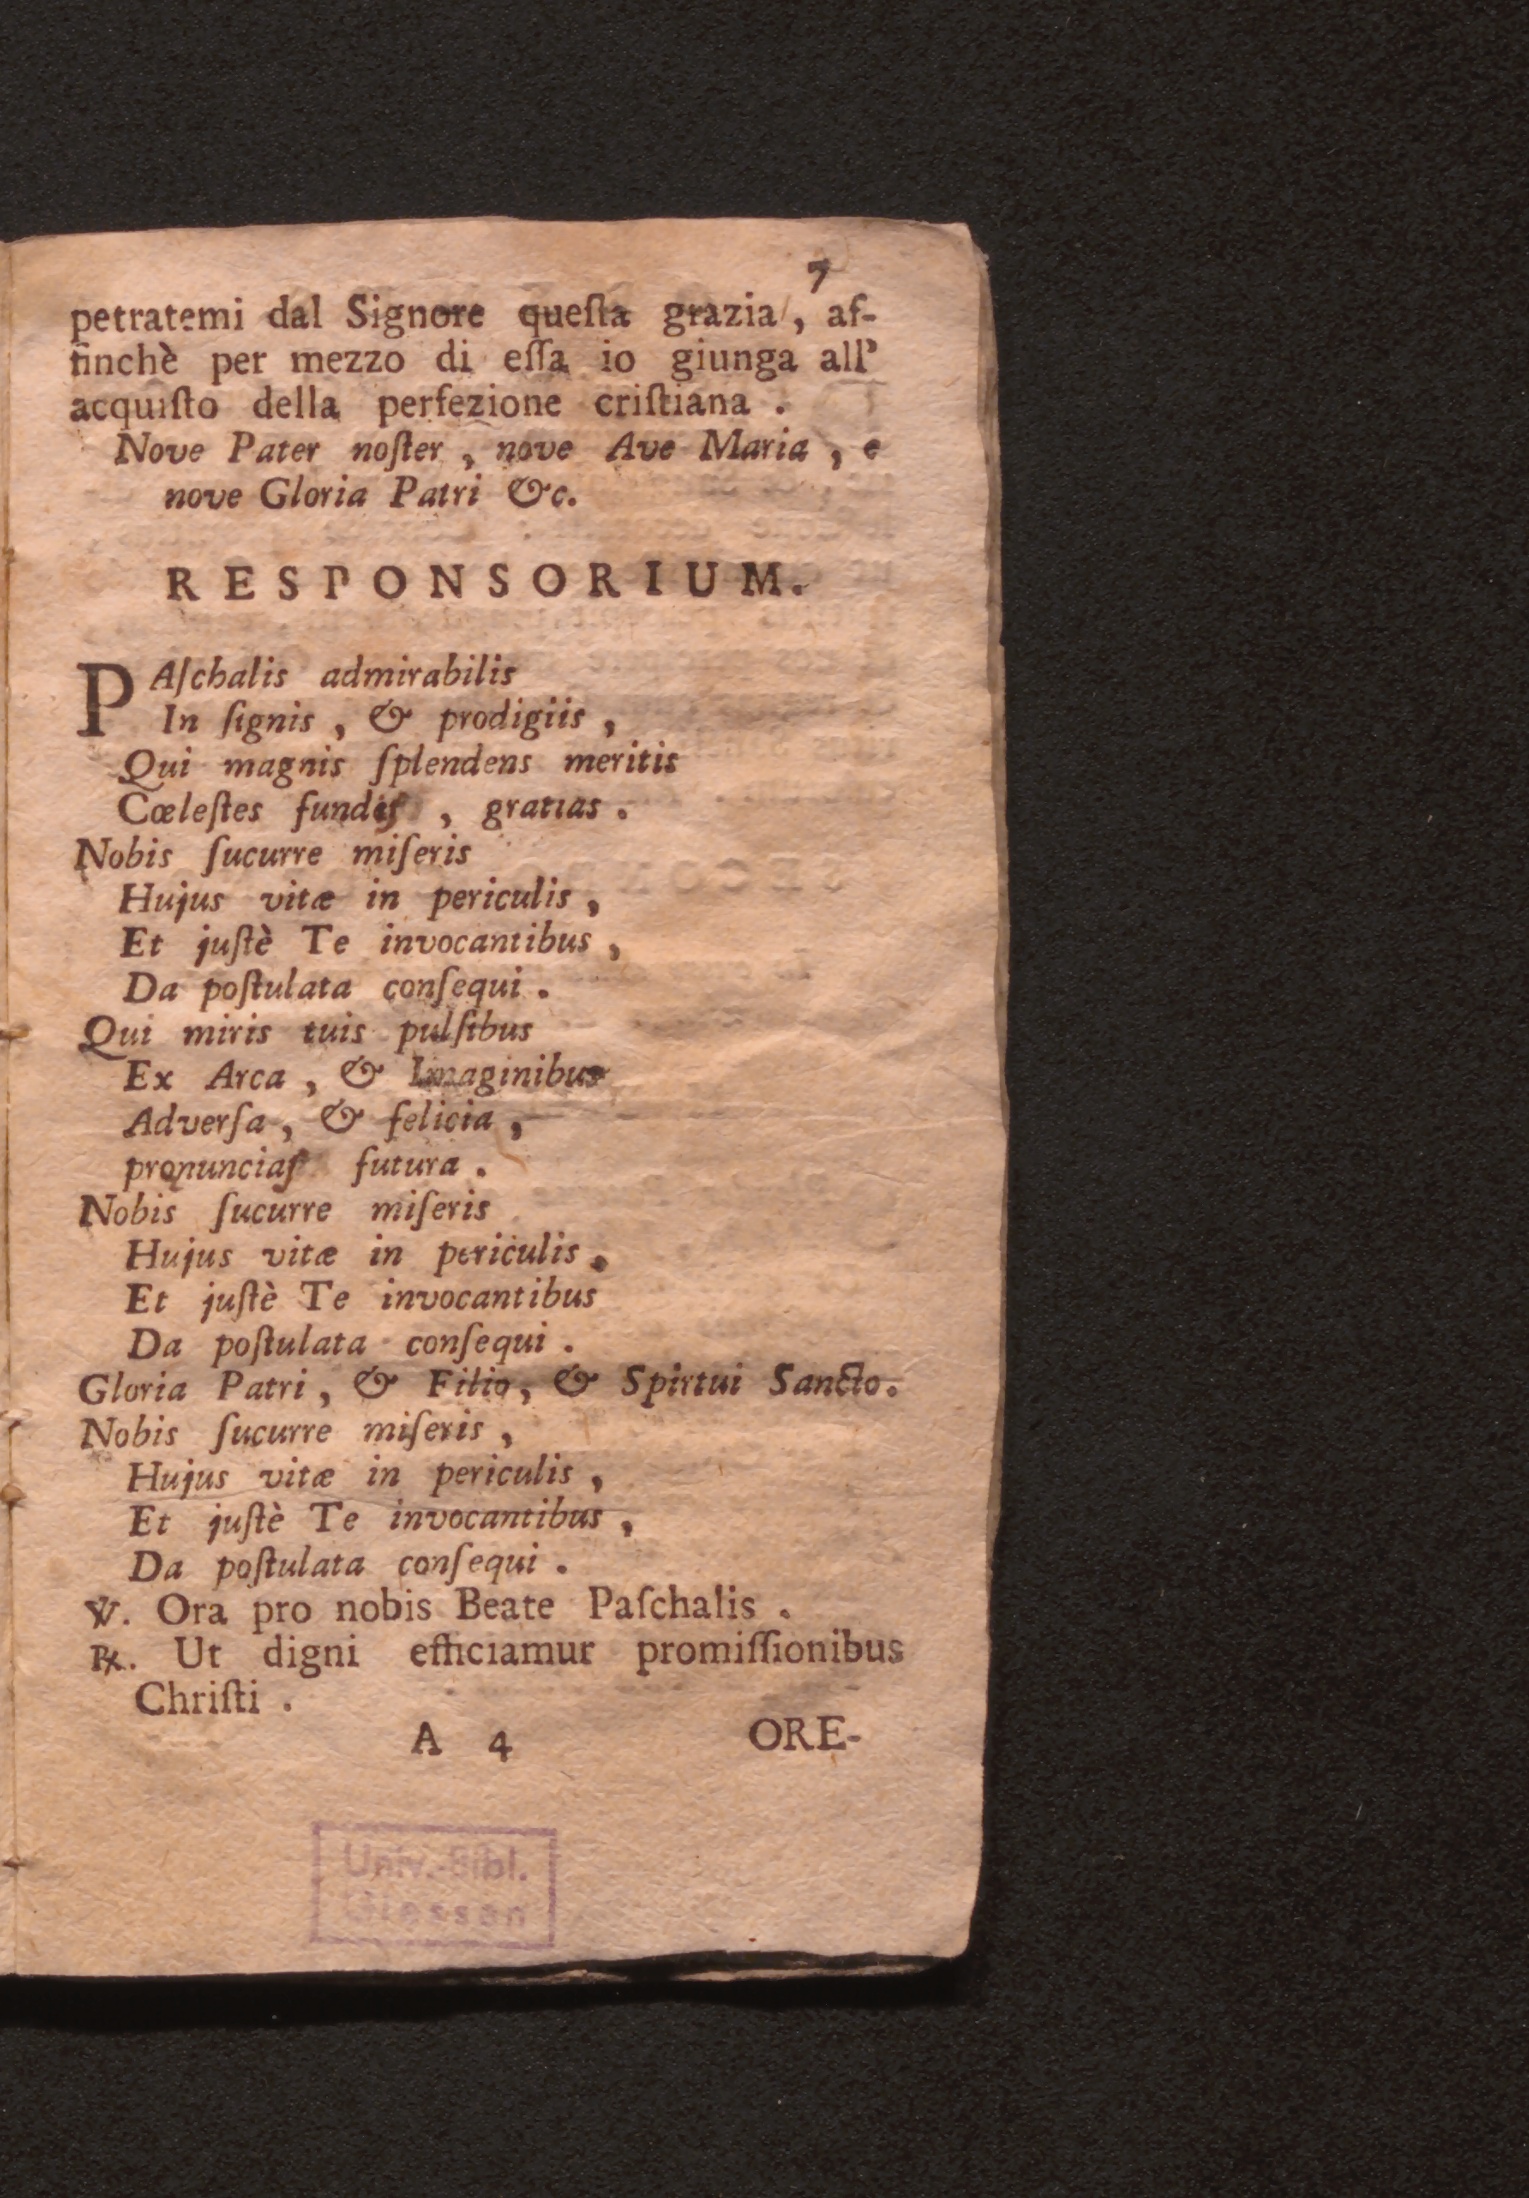 7
petratemi dal Signore queſta grazia, af-
finchè per mezzo di eſſa io giunga all'
acquiſto della perfezione criſtiana .
Nove Pater noſter , nove Ave Maria , e
nove Gloria Patri &c.
RESPONSORIUM.
PAſchalis admirabilis
In ſignis , & prodigiis ,
Qui magnis ſplendens meritis
Cœleſtes fundis , gratias .
Nobis ſucurre miſeris
Hujus vitæ in periculis ,
Et juſtè Te invocantibus ,
Da poſtulata conſequi .
Qui miris tuis pulſibus
Ex Arca , & Imaginibus
Adverſa , & felicia ,
pronunciaſ futura .
Nobis ſucurre miſeris
Hujus vitæ in periculis ,
Et juſtè Te invocantibus
Da poſtulata conſequi .
Gloria Patri , & Filio , & Spirtui Sancto.
Nobis ſucurre miſeris ,
Hujus vitæ in periculis ,
Et juſtè Te invocantibus ,
Da poſtulata conſequi .
℣. Ora pro nobis Beate Paſchalis .
℟. Ut digni efficiamur promiſſionibus
Chriſti .
A 4 ORE-
Univ.-Bibl.
Giessen